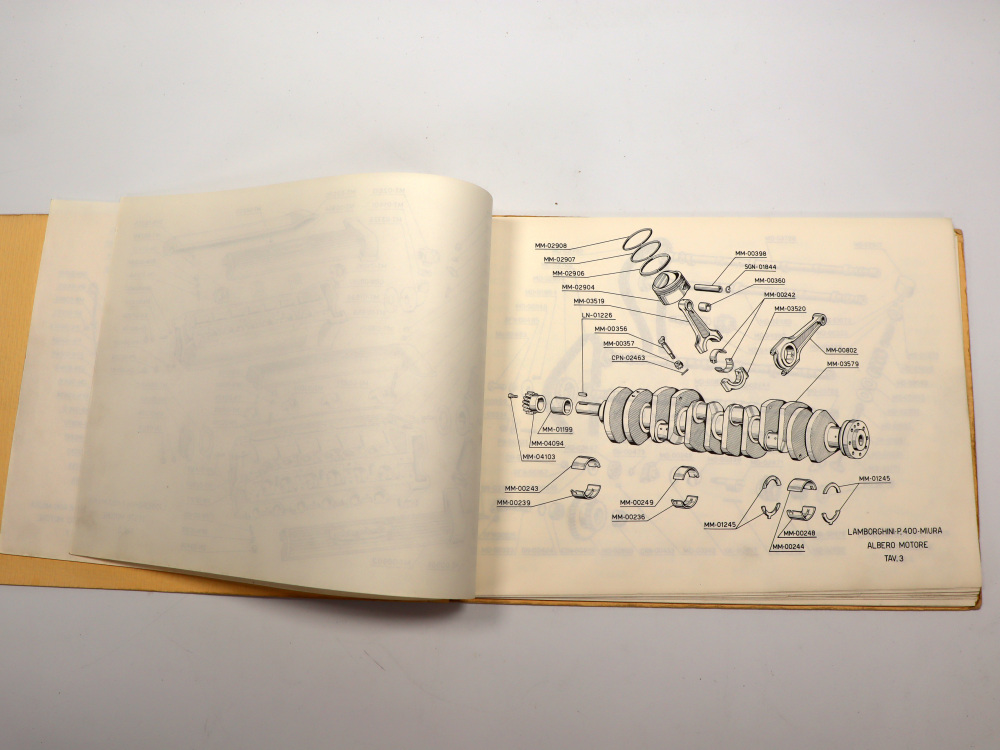 MM-02908
MM-02907
MM-02906
MM-02904
MM-03519
LN-01226
MM-00356
MM-00357
CPN-02463
MM-00398
SGN-01844
MM-00360
MM-00242
MM-03520
MM-00802
MM-03579
MM-01199
MM-04094
MM-04103
MM-00243
MM-00239
MM-00249
MM-00236
MM-01245
MM-00248
MM-00244
MM-01245
LAMBORGHINI-P.400-MIURA
ALBERO MOTORE
TAV. 3